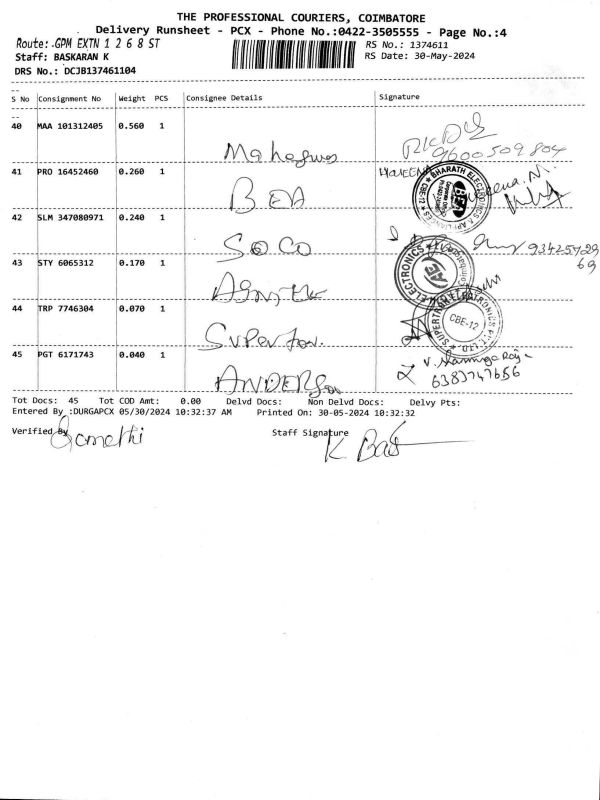 THE PROFESSIONAL COURIERS, COIMBATORE
Delivery Runsheet - PCX - Phone No.:0422-3505555 - Page No.:4
Route: GPM EXTN 1 2 6 8 ST
RS No.: 1374611
Staff: BASKARAN K
RS Date: 30-May-2024
DRS No.: DCJB137461104
S No Consignment No Weight PCS Consignee Details Signature
40 MAA 101312405 0.560 1
9600509804
41 PRO 16452460 0.260 1
BHARATH ELECTRONICS & APPLIANCES
CBE-12
42 SLM 347080971 0.240 1 SOCO
43 STY 6065312 0.170 1
ELECTRONICS
44 TRP 7746304 0.070 1
CBE-12
45 PGT 6171743 0.040 1 ANDERSON
6383747656
Tot Docs: 45 Tot COD Amt: 0.00 Delvd Docs: Non Delvd Docs: Delvy Pts:
Entered By :DURGAPCX 05/30/2024 10:32:37 AM Printed On: 30-05-2024 10:32:32
Verified By Gomathi
Staff Signature
K Bas